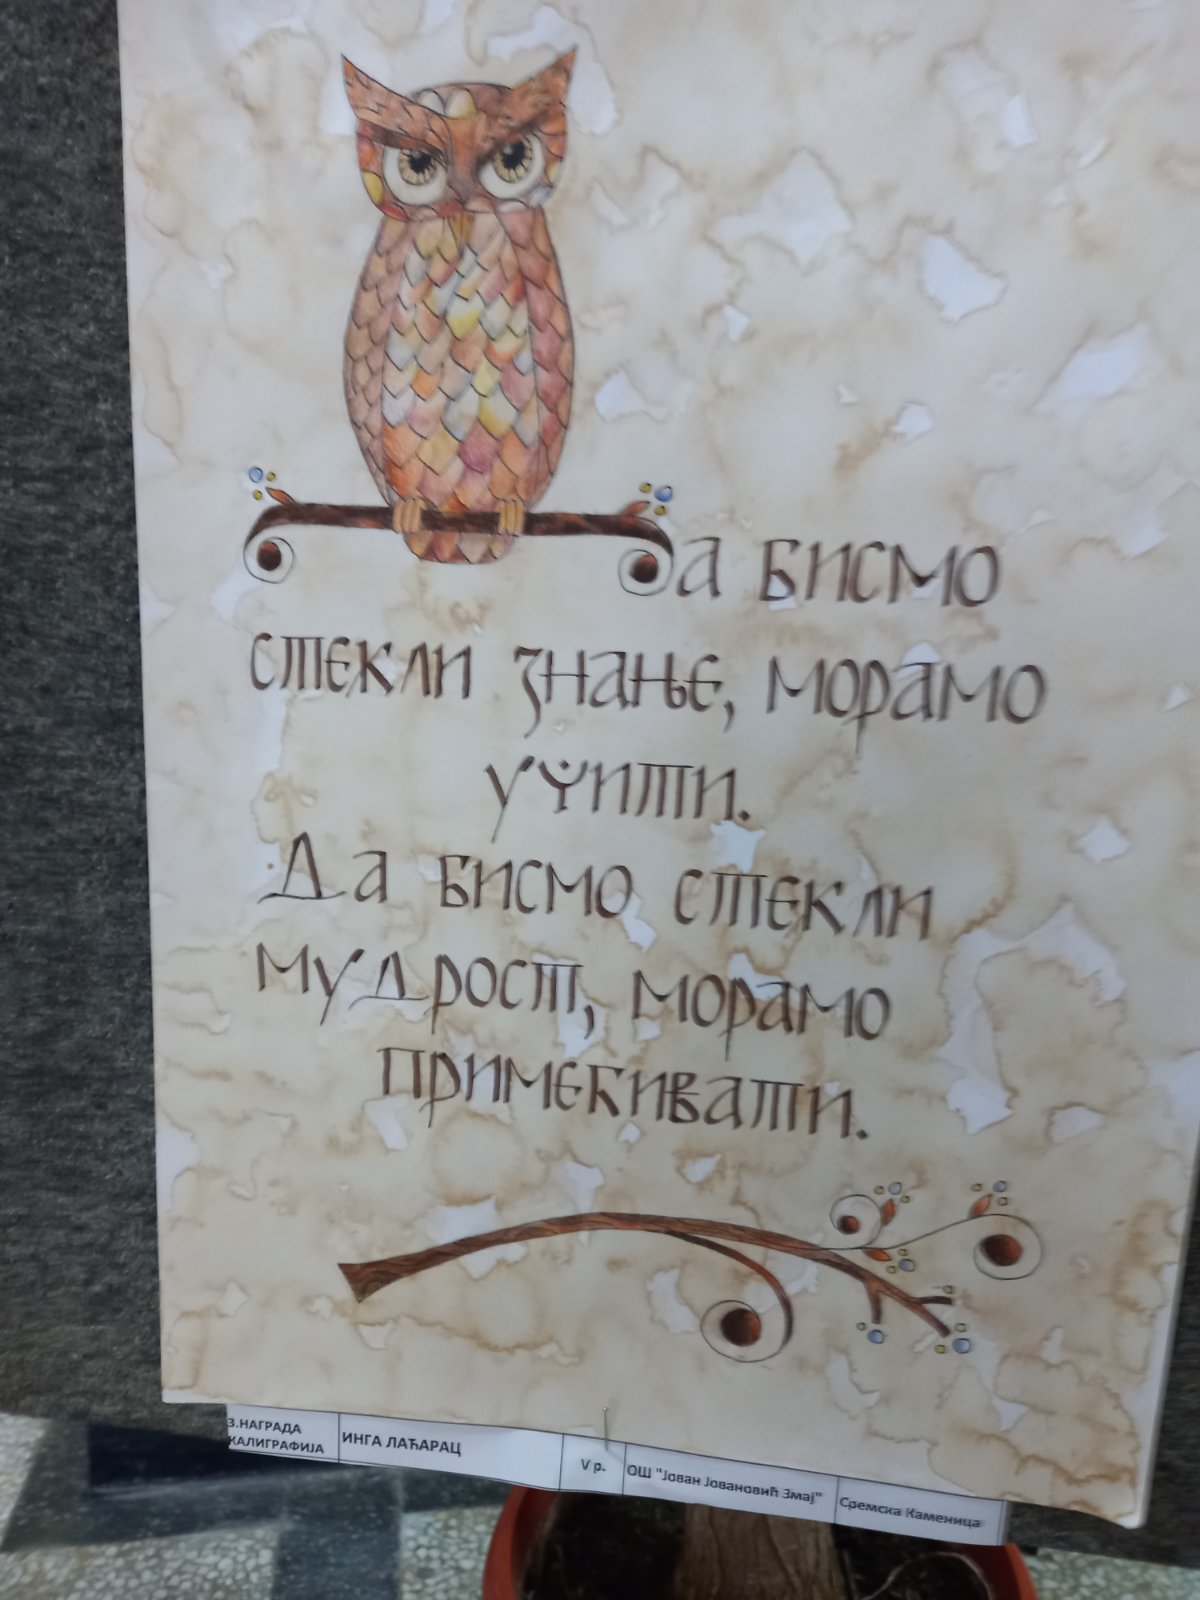 Да бисмо
стекли знање, морамо
учити.
Да бисмо стекли
мудрост, морамо
примећивати.
3.НАГРАДА
КАЛИГРАФИЈА
ИНГА ЛАЋАРАЦ
V р.
ОШ "Јован Јовановић Змај"
Сремска Каменица